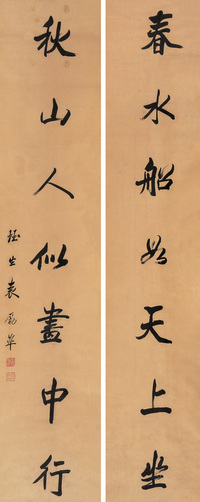 春水船如天上坐
秋山人似畫中行
珏生袁勵準